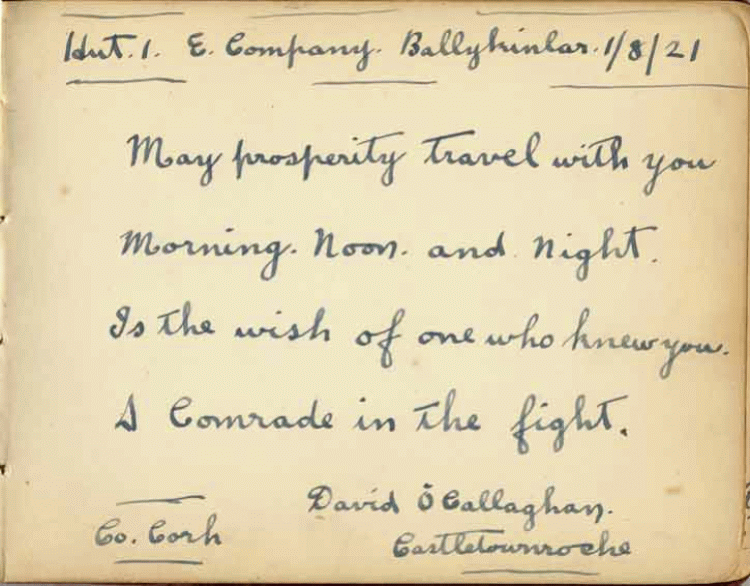 Hut. 1. E. Company. Ballykinlar. 1/8/21
May prosperity travel with you
Morning. Noon. and night.
Is the wish of one who knew you.
A Comrade in the fight.
David O'Callaghan.
Co. Cork
Castletownroche